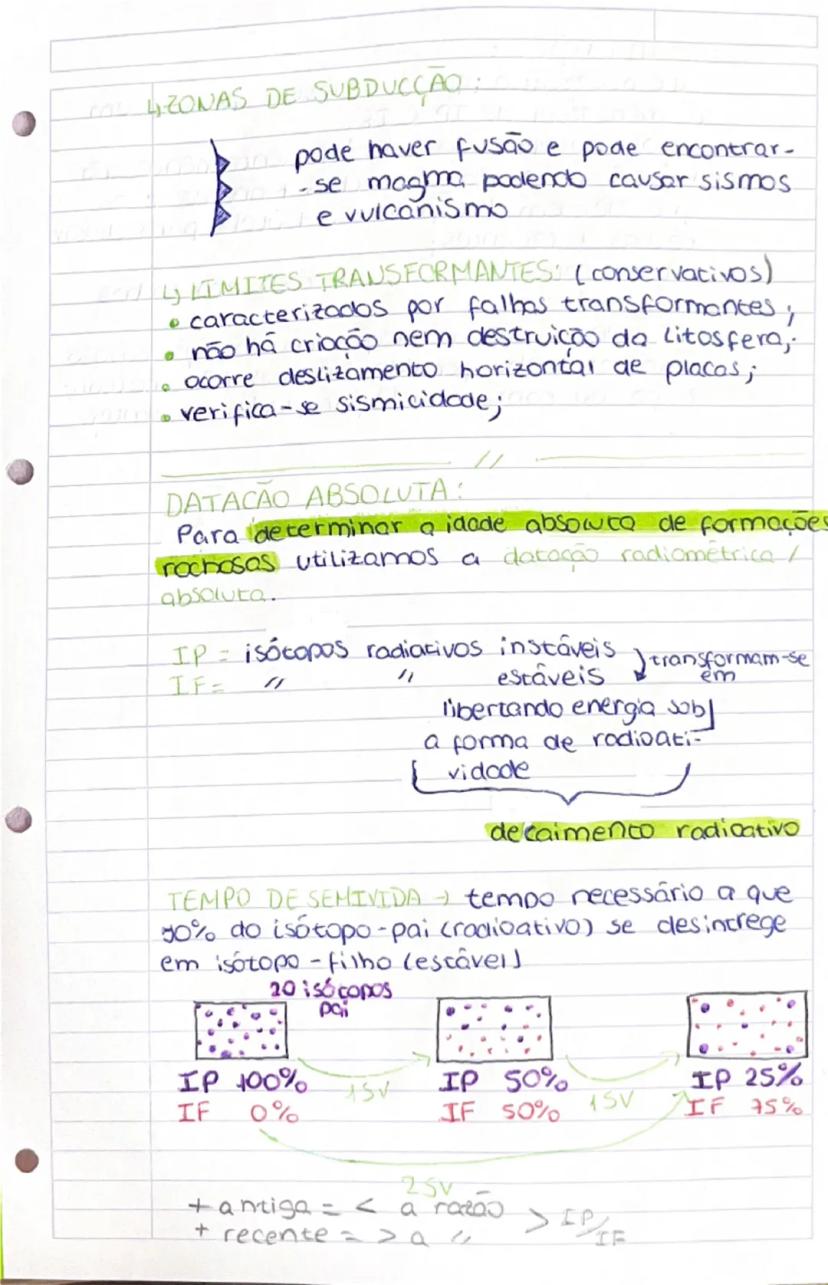 ↳ ZONAS DE SUBDUCÇÃO:
pode haver fusão e pode encontrar-
-se magma podendo causar sismos
e vulcanismo
↳ LIMITES TRANSFORMANTES: (conservativos)
• caracterizados por falhas transformantes;
• não há criação nem destruição da litosfera;
• ocorre deslizamento horizontal de placas;
• verifica-se sismicidade;
//
DATAÇÃO ABSOLUTA:
Para determinar a idade absoluta de formações
rochosas utilizamos a datação radiométrica /
absoluta.
IP = isótopos radiativos instáveis
IF = " " estáveis
transformam-se
em
libertando energia sob
a forma de radioati-
vidade
decaimento radioativo
TEMPO DE SEMIVIDA → tempo necessário a que
50% do isótopo-pai (radioativo) se desintrege
em isótopo-filho (estável)
20 isótopos
pai
IP 100% 1SV IP 50% 1SV IP 25%
IF 0% IF 50% IF 75%
2SV
+ antiga = < a razão > IP/IF
+ recente = > a "